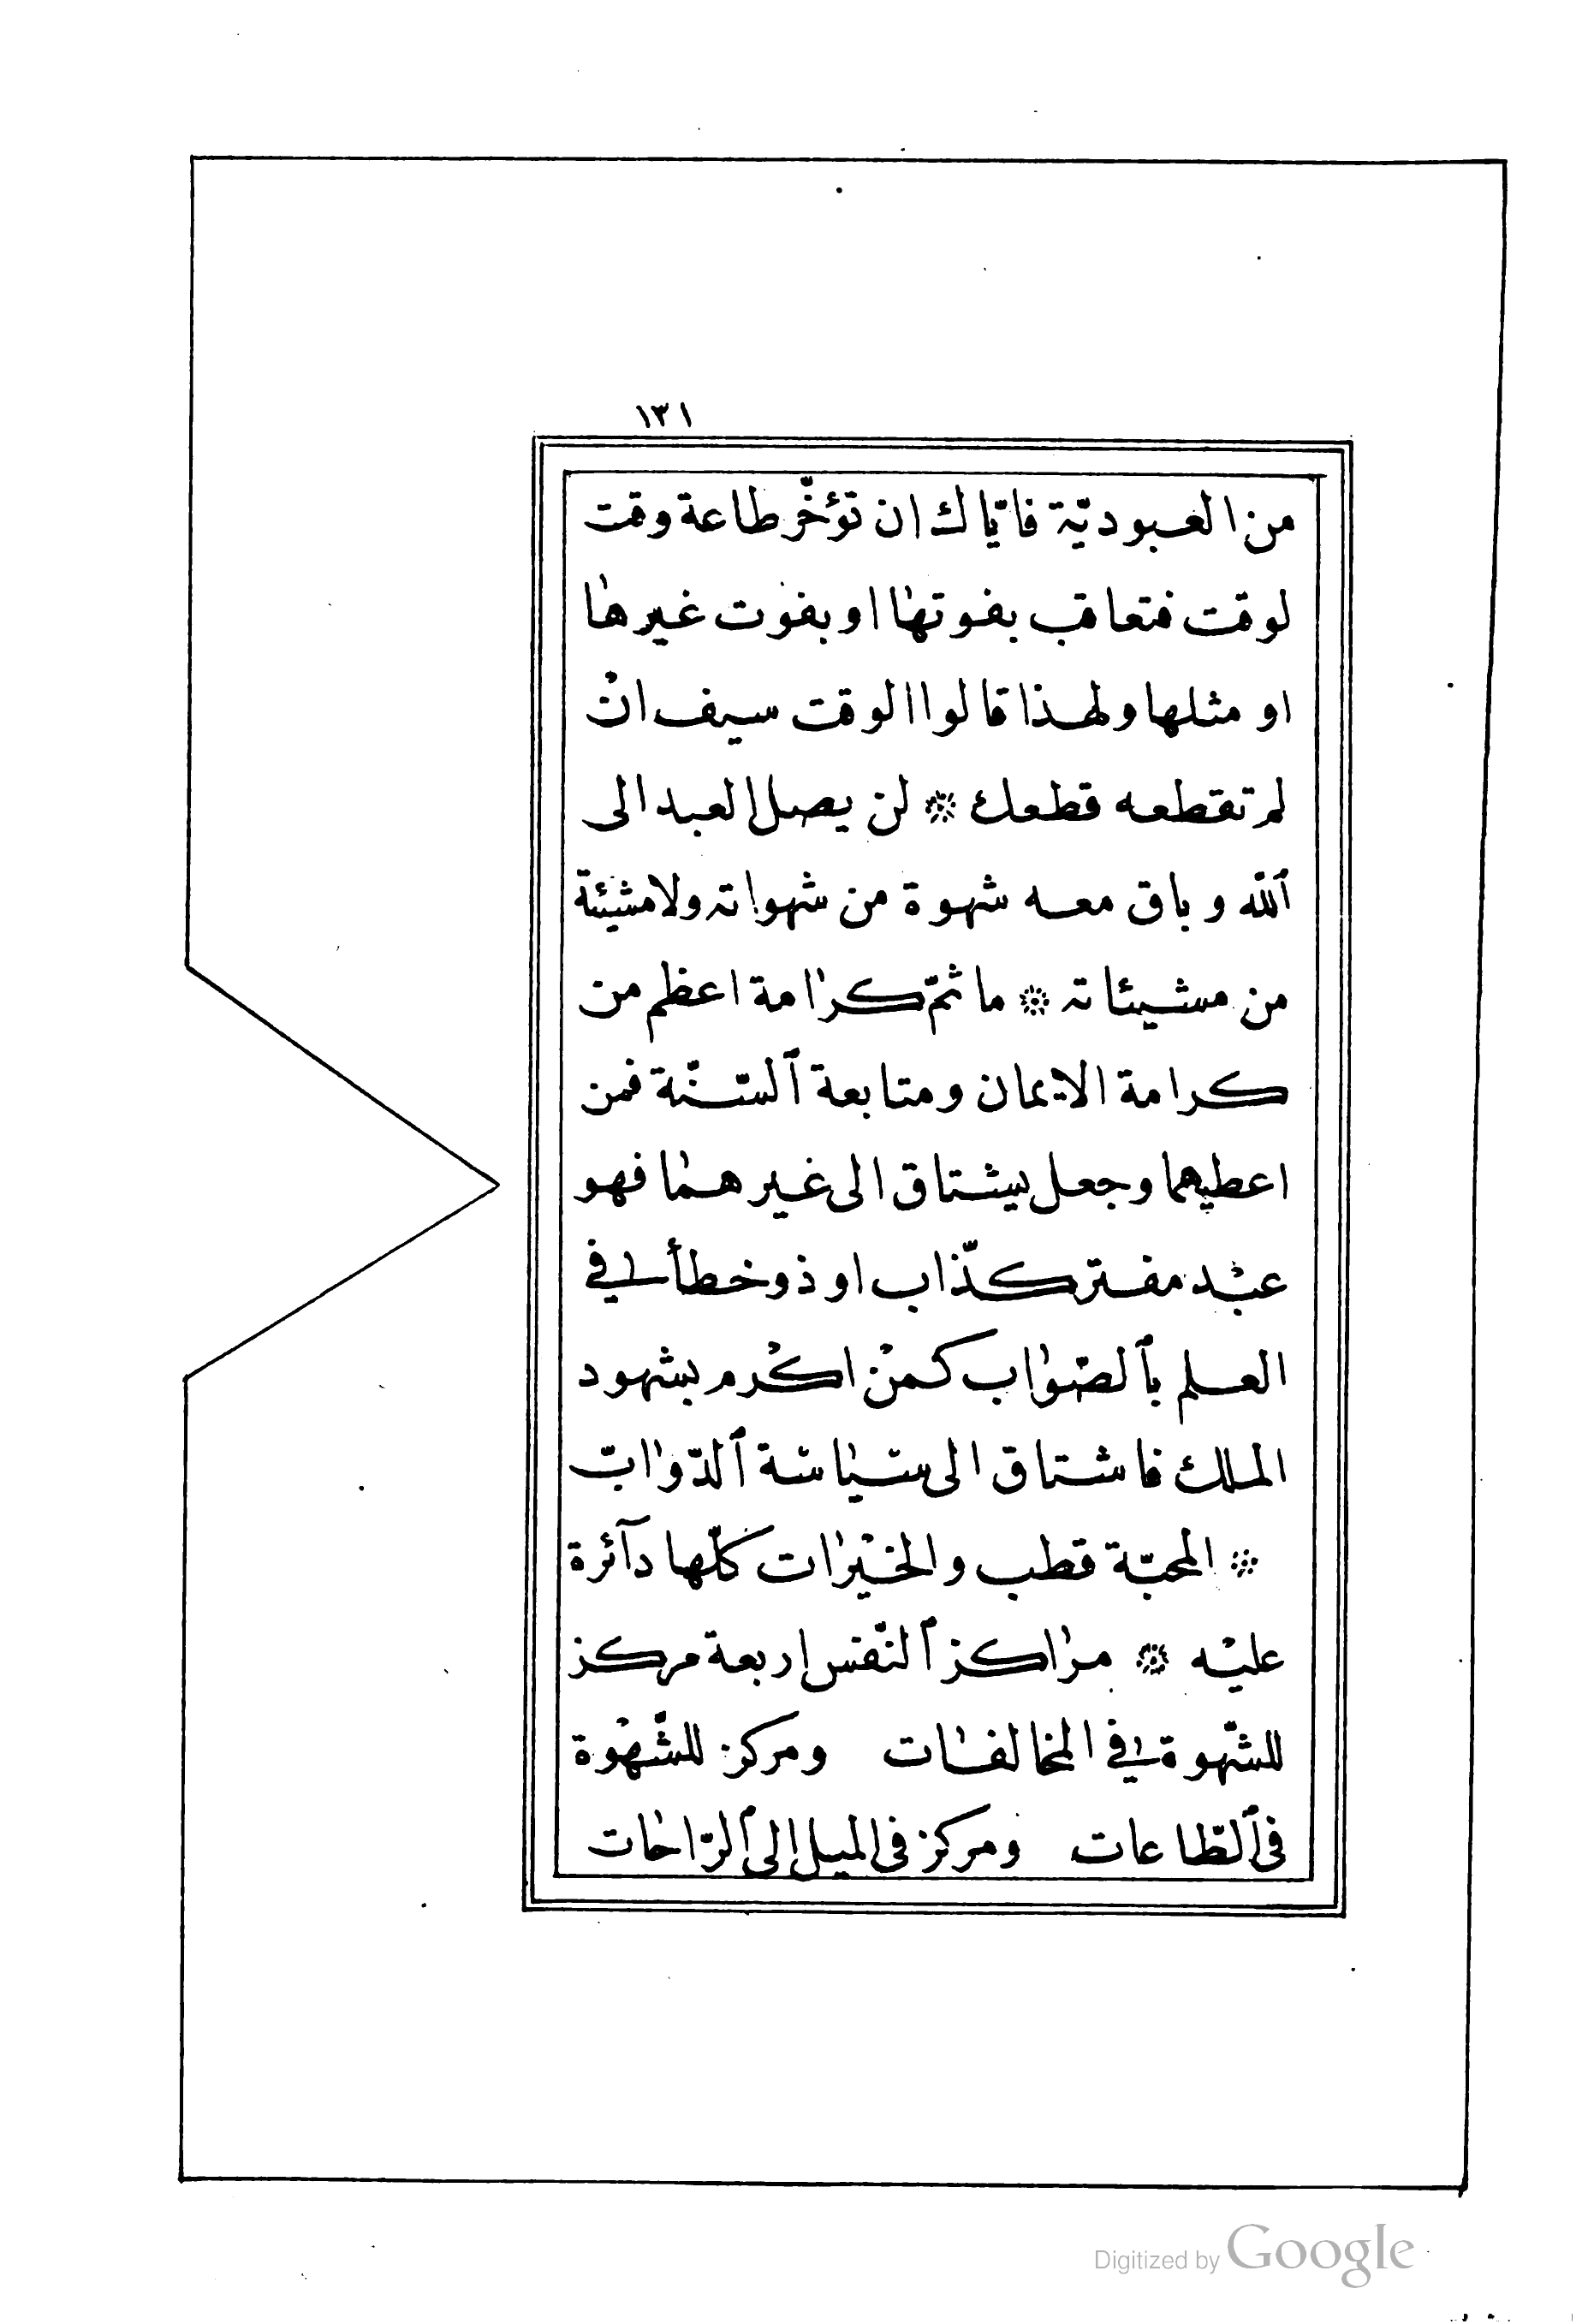 ١٣١
من العبوديّة فايّاك ان تؤخّر طاعة وقت
لوقت فتعاقب بفوتها او بفوت غيرها
او مثلها ولهذا قالوا الوقت سيف ان
لم تقطعه قطعك ※ لن يصل العبد الى
ٱللّٰه وباق معه شهوة من شهواته ولا مشيئة
من مشيئاته ※ ما ثمّ كرامة اعظم من
كرامة الايمان ومتابعة ٱلسّنّة فمن
اعطيهما وجعل يشتاق الى غيرهما فهو
عبْد مفتر كذّاب او ذو خطأ في
العلم بٱلصّواب كمنْ اكْرم بشهود
الملك فاشتاق الى سياسة ٱلدّوابّ
※ المحبّة قطب والخيْرات كلّها دآئرة
عليْه ※ مراكز ٱلنّفس اربعة مركز
للشّهوة في المخالفات ومركز للشّهْوة
في ٱلطّاعات ومركز في الميل الى ٱلرّاحات
Digitized by Google